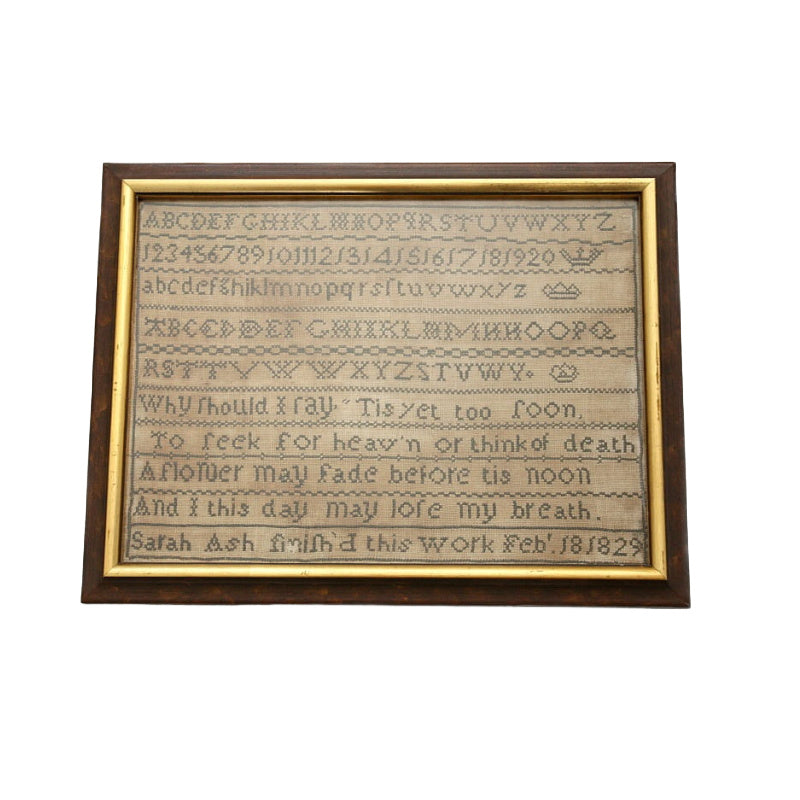 ABCDEFGHIKLMNOPQRSTUVWXYZ
1234567891011121314151617181920
abcdefghiklmnopqrsſtuvwxyz
ABCCDDEFGHIIKLMMNNOOPQ
RSTTVWWXYZSTVWY.
Why ſhould I ſay "Tis yet too ſoon,
To ſeek for heav'n or think of death
A flower may fade before tis noon
And I this day may loſe my breath.
Sarah Ash finiſh'd this work Feb'. 18 1829